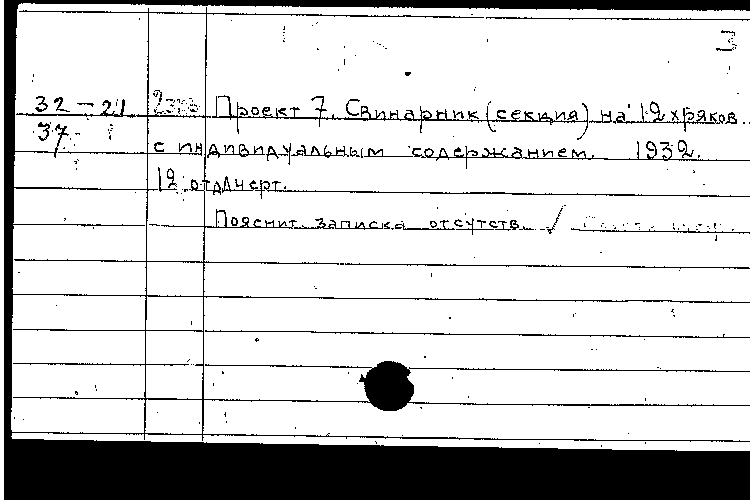 3
32-21 2экз Проект 7. Свинарник (секция) на 12 хряков
37
с индивидуальным содержанием. 1932.
12 отд. черт.
Пояснит. записка отсутств. √